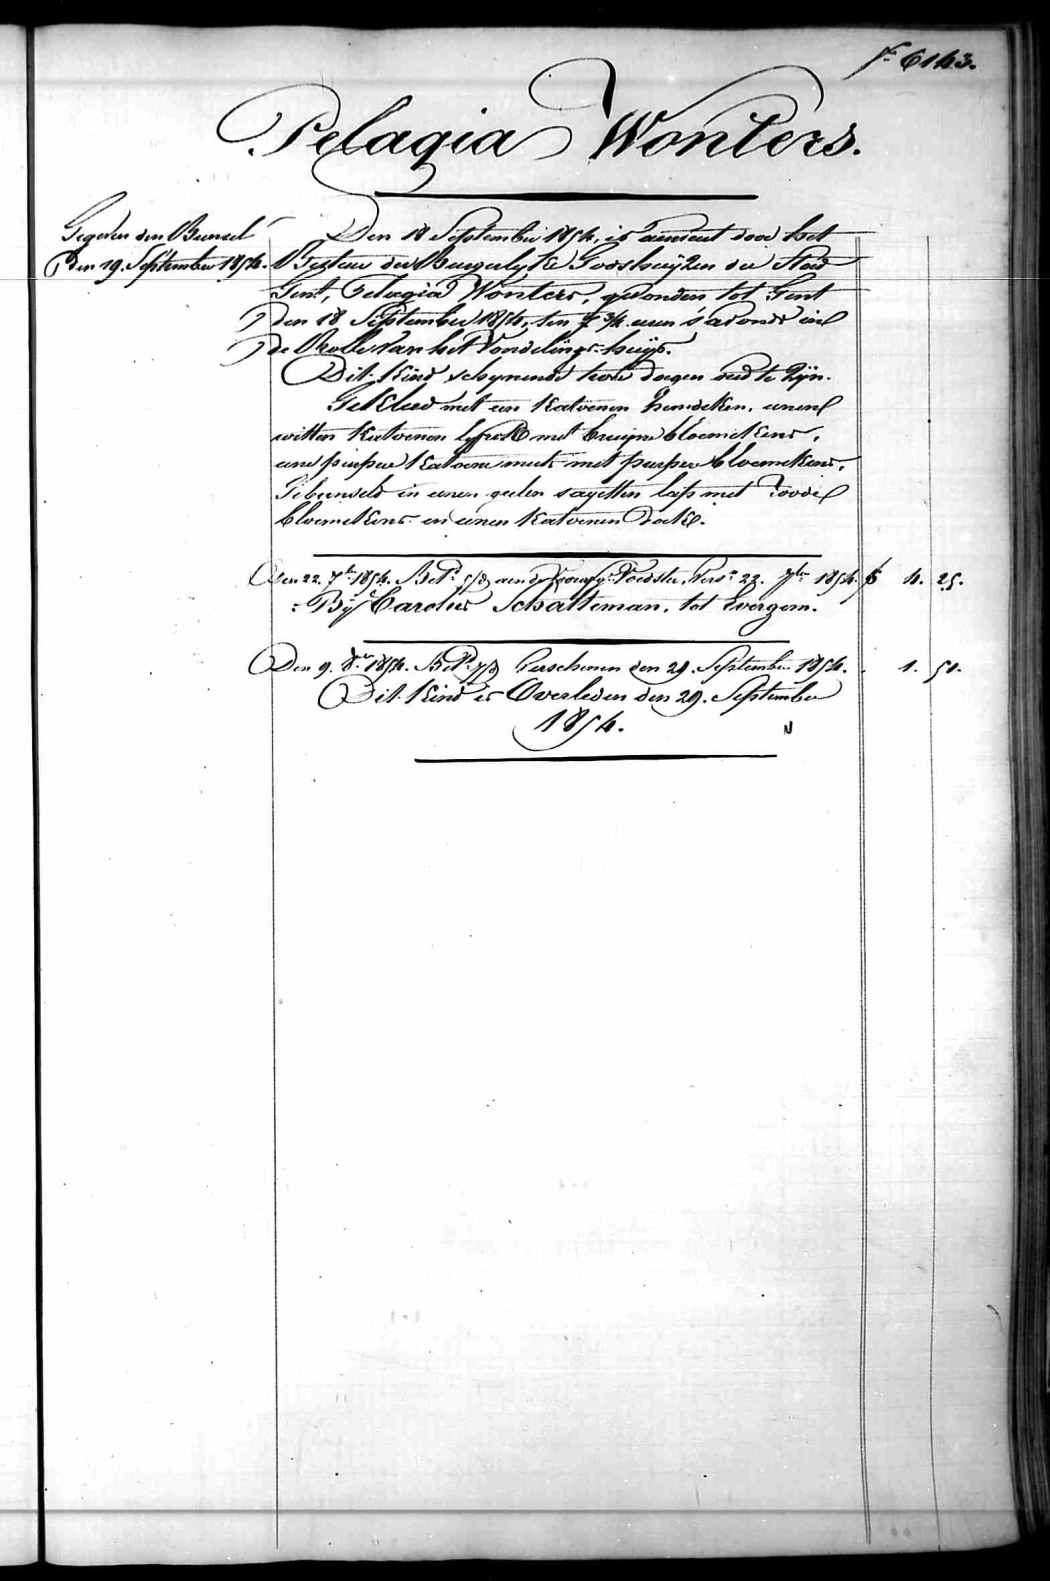 f° 6143.
Pelagia Wonters.
Gegeven den Bunsel
den 19. September 1854.
Den 18 September 1854, is aenveert door het
Bestuer der Burgerlyke Godshuyzen der Stad
Gent, Pelagia Wonters, gevonden tot Gent
den 18 September 1854, ten 7 3/4 uren s'avonds in
de Rolle van het Vondelings-huys.
Dit Kind schynende twee dagen oud te zyn.
Gekleed met een Katoenen hemdeken, eenen
witten Katoenen lyfrok met bruyne bloemekens,
eene purpere Katoene muts met purper bloemekens,
Gebunseld in eenen geelen sayetten lap met roode
bloemekens en eenen Katoenen doek.
Den 22. 7br 1854. Betd. 5/8 aen de Voedster, Vers. 22. 7br 1854. f 4. 25.
By Carolus Schatteman, tot Evergem.
Den 9. 8r 1854. Betd. 7/8 Verschenen den 29. September 1854. . 1. 51.
Dit Kind is Overleden den 29. September
1854. N